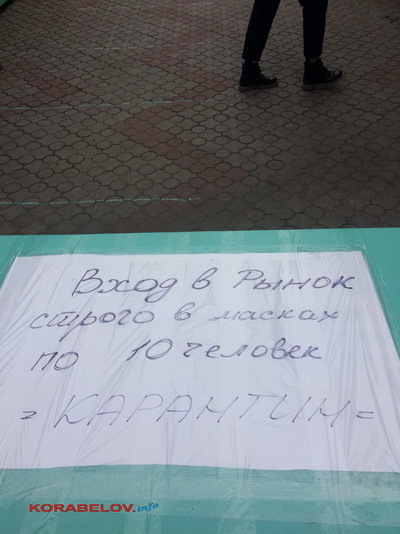 Вход в Рынок
строго в масках
по 10 человек
= КАРАНТИН =
KORABELOV.info